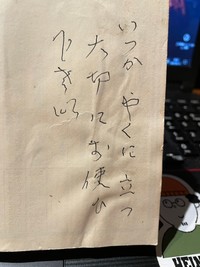 いつか やくに立つ
大切にお使ひ
下さい
HEIN